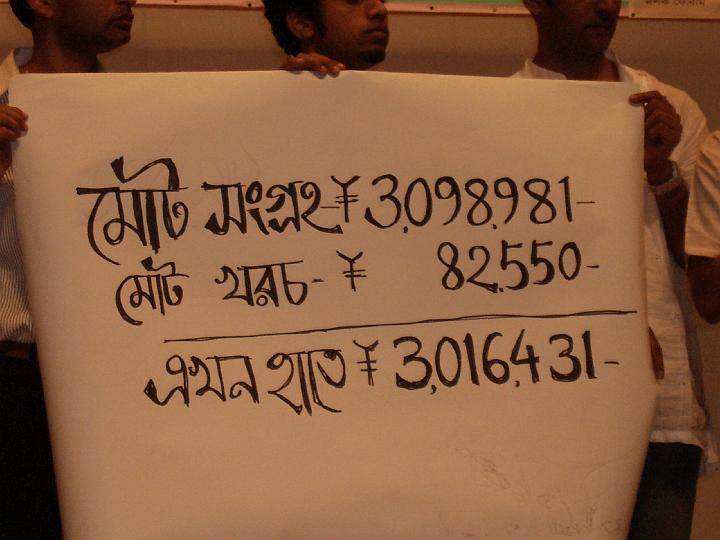 মোট সংগ্রহ-¥ 3,098,981-
মোট খরচ- ¥ 82,550-
এখন হাতে ¥ 3,016,431-